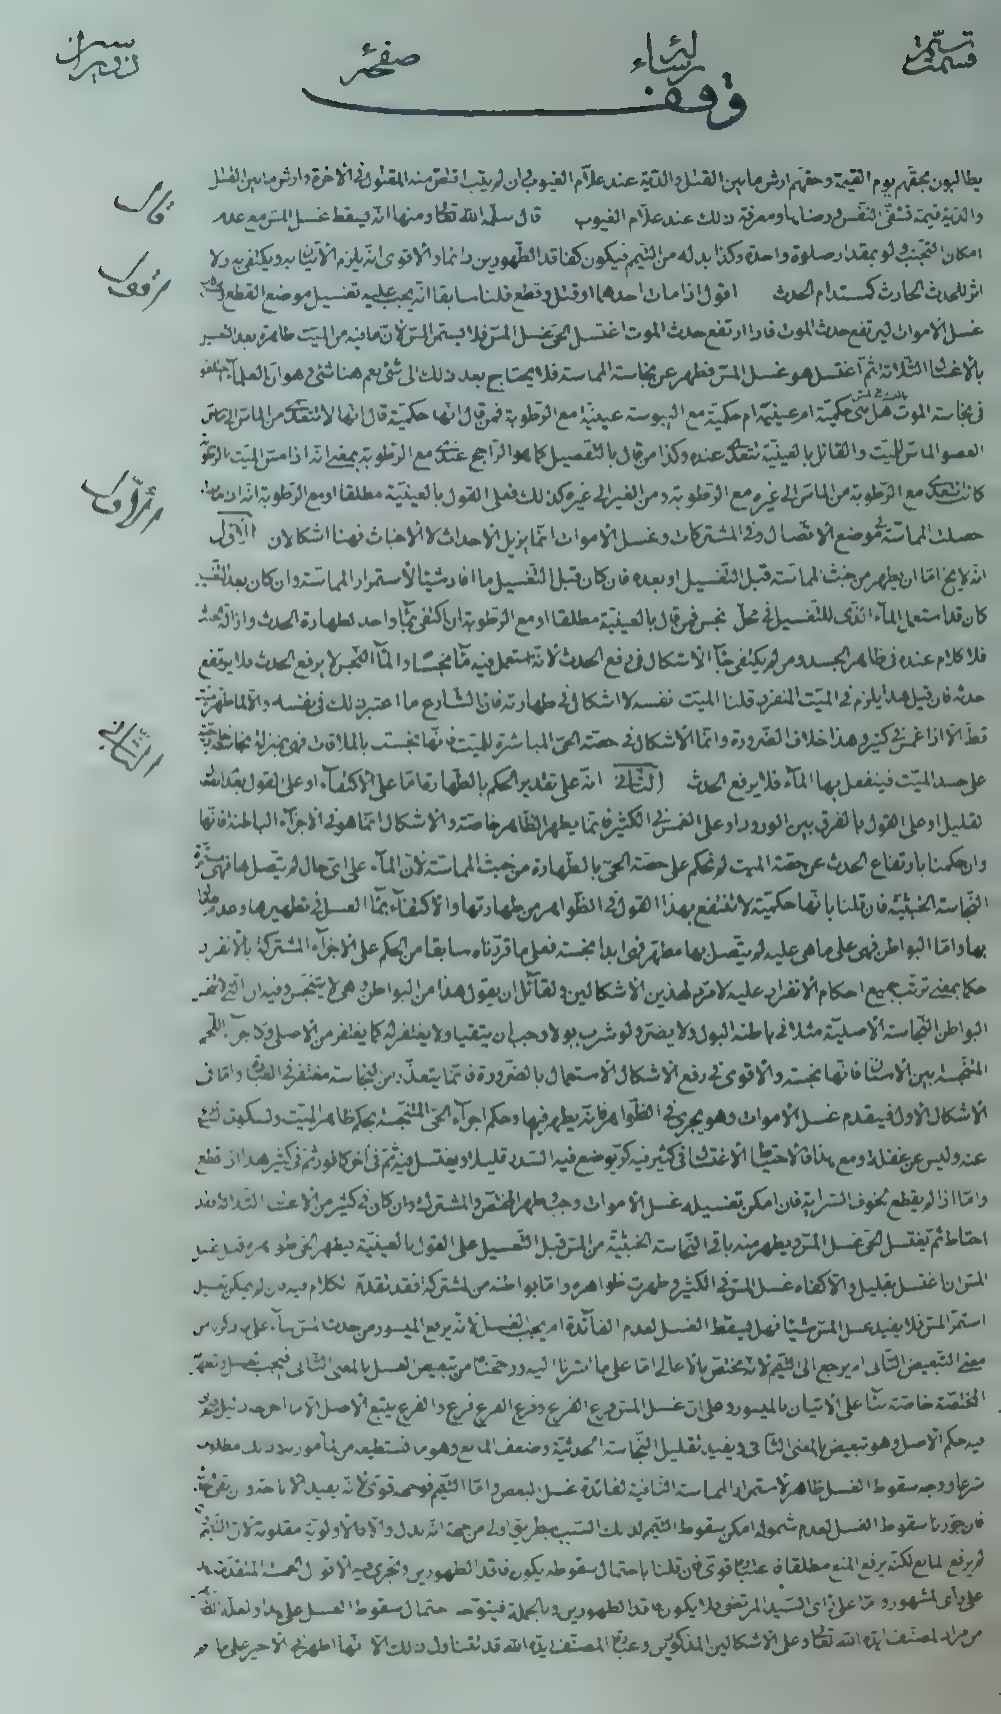 وقف
يطالبون بحقهم يوم القيمة وحقهم ارش ما بين القتل والدية عند علام الغيوب فان لم يتب اقتص منه المقتول في الاخرة وارش ما بين القتل
والدية قيمة تشفي النفس ورضاها ومعرفة ذلك عند علام الغيوب قال سلمه الله تعالى ومنها انه يسقط غسل المس مع عدم
امكان التجنب ولو بمقدار صلوة واحدة وكذا بدله من التيمم فيكون كفاقد الطهورين دائما والاقوى انه يلزم الاتيان به ويكتفي به ولا
اثر للحدث الحادث كمستدام الحدث اقول اذا مات احدهما او قتل وقطع قلنا سابقا انه يجب عليه تغسيل موضع القطع
غسل الاموات ليرتفع حدث الموت فاذا ارتفع حدث الموت اغتسل الحي غسل المس فلا يستمر المس لان ما فيه من الميت طاهرة بعد
بالاغسال الثلاثة ثم اغتسل هو غسل المس فطهر عن نجاسة المماسة فلا يحتاج بعد ذلك الى شئ نعم هنا شئ وهو ان العلماء
في نجاسة الموت هل هي حكمية ام عينية ام حكمية مع اليبوسة عينية مع الرطوبة فمن قال انها حكمية قال انها لا تتعدى من الماس الى
العضو الماس للميت والقائل بالعينية تتعدى عنده وكذا من قال بالتفصيل كما هو الراجح عندي مع الرطوبة بمعنى انه اذا مس الميت
كانت تتعدى مع الرطوبة من الماس الى غيره مع الرطوبة ومن الغير الى غيره كذلك فعلى القول بالعينية مطلقا او مع الرطوبة انه اذا
حصلت المماسة في موضع الاتصال وفي المشتركات وغسل الاموات انما يزيل الاحداث لا الاخباث فهنا اشكالان الاول
انه لا يخ اما ان يطهر من خبث المماسة قبل التغسيل او بعده فان كان قبل التغسيل ما افاد شيئا لاستمرار المماسة وان كان بعد
كان قد استعمل الماء الذي للتغسيل في محل نجس فمن قال بالعينية مطلقا او مع الرطوبة ان اكتفى بماء واحد لطهارة الحدث وازالة
فلا كلام عنده في ظاهر الجسد ومن لم يكتف جاء الاشكال في رفع الحدث لانه استعمل فيه ماء نجسا والماء النجس لا يرفع الحدث فلا يرتفع
حدثه فان قيل هذا يلزم في الميت المنفرد قلنا الميت نفسه لا اشكال في طهارته فان الشارع ما اعتبر ذلك في نفسه والا لما طهر
قط الا اذا غمس في كثير وهذا خلاف الضرورة وانما الاشكال في حصة الحي المباشرة للميت فانها نجست بالملاقات فهي بمنزلة نجاسة
على جسد الميت فينفعل بها الماء فلا يرفع الحدث الثاني انه على تقدير الحكم بالطهارة اما على الاكتفاء او على القول بعدم
لقليل او على القول بالفرق بين الورود او على الغمس في الكثير فانما يطهر الظاهر خاصة والاشكال انما هو في الاجزاء الباطنة فانها
وان حكمنا بارتفاع الحدث عن حصة الميت لم نحكم على حصة الحي بالطهارة من خبث المماسة لان الماء على اي حال لم يتصل بها فهي
النجاسة الخبثية فان قلنا بانها حكمية لا ننتفع بهذا القول في الظواهر من طهارتها والاكتفاء بماء الغسل في تطهيرها وعدم
بها واما البواطن فهي على ما هي عليه لم يتصل بها مطهر فهي ابدا نجسة فعلى ما قررناه سابقا من الحكم على الاجزاء المشتركة بالانفراد
حكما بمعنى ترتب جميع احكام الانفراد عليه لا مرد لهذين الاشكالين ولقائل ان يقول هذا من البواطن وهي لا يتنجس وفيه ان التي لا تنجس
البواطن النجاسة الاصلية مثلا في باطنه البول ولا يضره ولو شرب بولا وجب ان يتقيا ولا يغتفر له كما يغتفر من الاصلي وكاجزاء اللحم
المتنجسة بين الاسنان فانها نجسة والاقوى في رفع الاشكال الاستعمال بالضرورة فانما يتعذر من النجاسة مغتفر في الصلوة واما في
الاشكال الاول فيقدم غسل الاموات وهو يجري في الظواهر فانه يطهر فيها وحكم اجزاء الحي المتنجسة بحكم ظاهر الميت
عنه وليس عن غفلة ومع هذا فالاحتياط الاغتسال في كثير فيه كر يوضع فيه السدر قليلا ويغتسل فيه ثم في اخر كافور ثم في كثير هذا اذا قطع
واما اذا لم يقطع لخوف السراية فان امكن تغسيله غسل الاموات وجب وطهر المختص والمشترك وان كان في كثير من الاغسال الثلاثة فقد
احتاط ثم يغتسل الحي غسل المس ويطهر منه باقي النجاسة الخبثية من المس قبل التغسيل على القول بالعينية ويطهر الحي ظواهره قبل غسل
المس ان اغتسل بقليل والاكفاه غسل المس في الكثير وطهرت ظواهره واما بواطنه من المشتركة فقد تقدم الكلام فيه فان لم يمكن تغسيله
استمر المس فلا يفيد غسل المس شيئا فهل يسقط الغسل لعدم الفائدة ام يجب الغسل لانه يرفع الميسور من حدث المس بناء على
معنى التبعيض الثاني ام يرجع الى التيمم لانه مختص بالاعالي اما على ما اشرنا اليه ورجحنا من تبعيض الغسل بالمعنى الثاني فيجب غسل
المختصة خاصة بناء على الاتيان بالميسور وعلى ان غسل المس فرع الفرع وفرع الفرع فرع والفرع يتبع الاصل الا ما اخرجه دليل
فيه حكم الاصل وهو تبعيض بالمعنى الثاني ويفيد تقليل النجاسة الحدثية وضعف المانع وهو ما نستطيعه من المأمور به وذلك مطلوب
شرعا ووجه سقوط الغسل ظاهر لاستمرار المماسة المنافية لفائدة غسل البعض واما التيمم فوجهه قوي لانه يفيد الاباحة
فان جوزنا سقوط الغسل لعدم شموله امكن سقوط التيمم لذلك السبب بطريق اولى من جهة انه بدل والا فالاولوية مقلوبة لان التيمم
لم يرفع المانع لكنه يرفع المنع مطلقا قوي فان قلنا باحتمال سقوطه يكون فاقد الطهورين ويجري فيه الاقوال الخمسة المتقدمة
على رأي المشهور واما على رأي السيد المرتضى فلا يكون فاقد الطهورين وبالجملة فيتوجه احتمال سقوط الغسل على هذا ولعله
من مراد المصنف ايده الله تعالى وعلى الاشكالين المذكورين وعبارة المصنف ايده الله قد تتناول ذلك الا انها اظهر في الاخير على ما
قال
اقول
الاول
الثاني